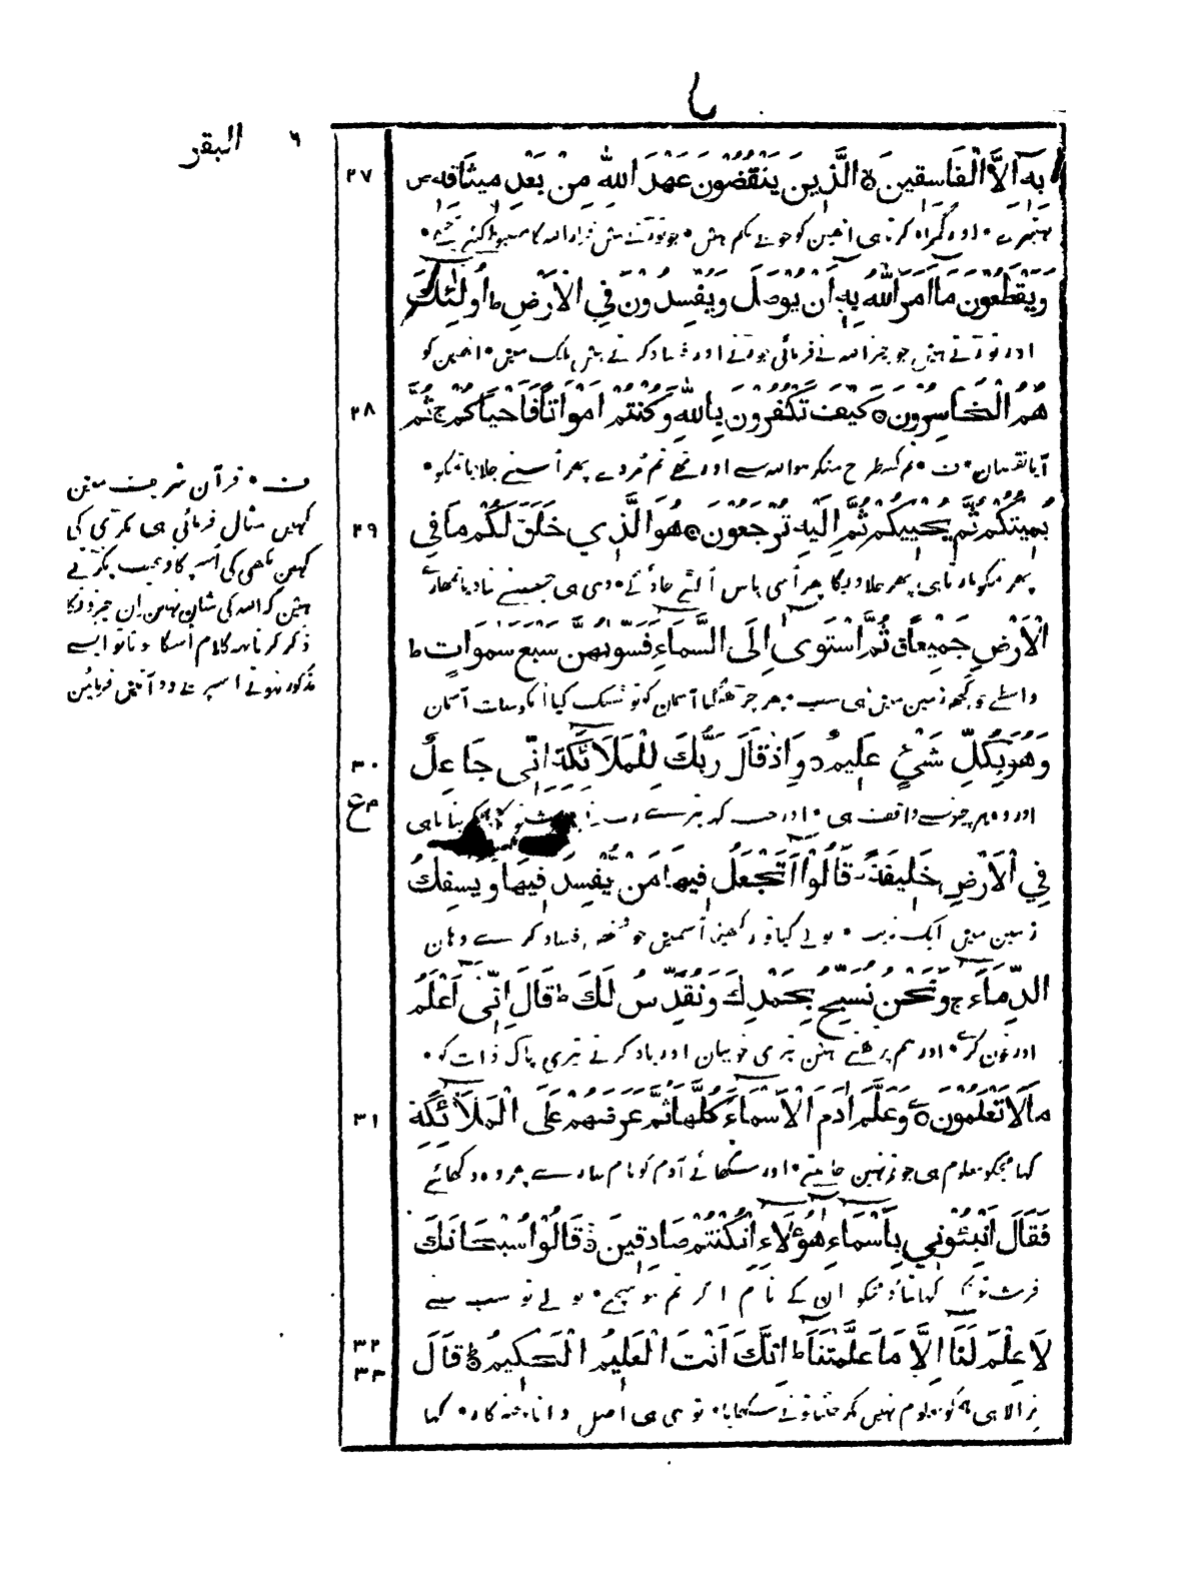 ۶ البقر
۲۷
بِهٖٓ اِلَّا الْفَاسِقِينَ ۞ الَّذِينَ يَنْقُضُونَ عَهْدَ اللّٰهِ مِنْ بَعْدِ مِيثَاقِهٖ ص
بہتیرے • اور گمراہ کرتا ہی انھین کو جو بے حکم ہین •
وَيَقْطَعُونَ مَآ اَمَرَ اللّٰهُ بِهٖٓ اَنْ يُوْصَلَ وَيُفْسِدُونَ فِي الْاَرْضِ ط اُولٰٓئِكَ
اور توڑتے ہین جو چیز اللہ نے فرمائی جوڑنے اور فساد کرتے ہین ملک مین • انھین کو
۲۸
هُمُ الْخَاسِرُونَ ۞ كَيْفَ تَكْفُرُونَ بِاللّٰهِ وَكُنْتُمْ اَمْوَاتًا فَاَحْيَاكُمْ ج ثُمَّ
آیا نقصان • ف • تم کسطرح منکر ہو اللہ سے اور تھے تم مُردے پھر اُسنے جلایا تمکو •
۲۹
يُمِيتُكُمْ ثُمَّ يُحْيِيكُمْ ثُمَّ اِلَيْهِ تُرْجَعُونَ ۞ هُوَ الَّذِي خَلَقَ لَكُمْ مَا فِي
پھر تمکو مارتا ہی پھر جلاویگا پھر اُسی پاس اُلٹے جاؤگے • وہی ہی جسنے بنادیا تمھارے
الْاَرْضِ جَمِيْعًا ق ثُمَّ اسْتَوٰى اِلَى السَّمَآءِ فَسَوّٰىهُنَّ سَبْعَ سَمٰوَاتٍ ط
واسطے جو کچھ زمین مین ہی سب • پھر چڑھ گیا آسمان کو تو ٹھیک کیا اُنکو سات آسمان
۳۰
وَهُوَ بِكُلِّ شَيْئٍ عَلِيمٌ ۞ وَاِذْ قَالَ رَبُّكَ لِلْمَلَآئِكَةِ اِنِّي جَاعِلٌ
ع
اور وہ ہر چیز سے واقف ہی • اور جب کہا تیرے رب نے
فِي الْاَرْضِ خَلِيفَةً ط قَالُوْا اَتَجْعَلُ فِيهَا مَنْ يُّفْسِدُ فِيهَا وَيَسْفِكُ
زمین مین ایک نایب • بولے کیا تو رکھیگا اُسمین جو شخص فساد کرے وہان
الدِّمَآءَ ج وَنَحْنُ نُسَبِّحُ بِحَمْدِكَ وَنُقَدِّسُ لَكَ ط قَالَ اِنِّيٓ اَعْلَمُ
اور خون کرے • اور ہم پڑھتے ہین تیری خوبیان اور یاد کرتے تیری پاک ذات کو •
۳۱
مَا لَا تَعْلَمُونَ ۞ وَعَلَّمَ اٰدَمَ الْاَسْمَآءَ كُلَّهَا ثُمَّ عَرَضَهُمْ عَلَى الْمَلَآئِكَةِ
کہا مجکو معلوم ہی جو تم نہین جانتے • اور سکھائے آدم کو نام سارے پھر وہ دکھائے
فَقَالَ اَنْبِئُوْنِي بِاَسْمَآءِ هٰٓؤُلَآءِ اِنْ كُنْتُمْ صَادِقِينَ ۞ قَالُوْا سُبْحَانَكَ
فرشتونکو کہا بتاؤ مجکو ان کے نام اگر تم ہو سچے • بولے تو سب سے
۳۲
لَا عِلْمَ لَنَآ اِلَّا مَا عَلَّمْتَنَا ط اِنَّكَ اَنْتَ الْعَلِيمُ الْحَكِيمُ ۞ قَالَ
۳۳
نرالا ہی ہمکو معلوم نہین مگر جتنا تو نے سکھایا • تو ہی ہی اصل دانا پختہ کار • کہا
ف • قرآن شریف مین
کہین مثال فرمائی ہی مکڑی کی
کہین مکھی کی اُسپر کافر عیب پکڑتے
ہین کہ اللہ کی شان نہین ان چیزونکا
ذکر کرنا یہ کلام اُسکا ہوتا تو ایسے
مذکور نہوتے اسپر یے دو آیتین فرمائین